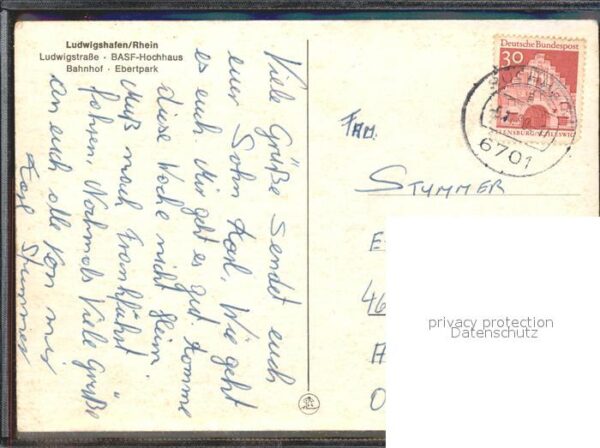 Ludwigshafen/Rhein
Ludwigstraße · BASF-Hochhaus
Bahnhof · Ebertpark
Viele Grüße Sendet euch
eur Sohn Karl. Wie geht
es euch. Mir geht es gut. Komme
diese Woche nicht Heim
muß nach Frankfurt
fahren. Nochmals Viele Grüße
an euch alle Von mir
Karl Stummer
Deutsche Bundespost
30
FLENSBURG/SCHLESWIG
6701
FAM.
STUMMER
E
46
A
O
privacy protection
Datenschutz